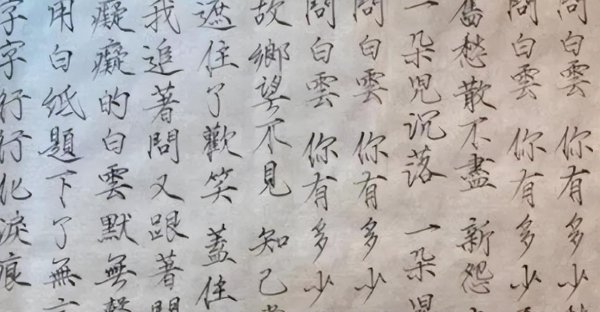 問白雲 你有多少
問白雲 你有多少
舊愁散不盡 新怨
一朵兒沉落 一朵兒
問白雲 你有多少
問白雲 你有多少
故鄉望不見 知己
遮住了歡笑 蓋住
我追著問又跟著問
癡癡的白雲默無聲
用白紙題下了無
字字行行化淚痕